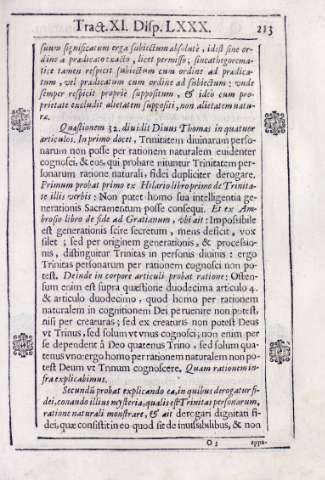 Tract. XI. Disp. LXXX. 213
suum significatum erga subiectum absolutè, idest sine or-
dine a prædicato exacto, licet permisso; sincathegorema-
tice tamen respicit subiectum cum ordine ad prædica-
tum, vel prædicatum cum ordine ad subiectum: vnde
semper respicit proprie suppositum, & ideo cum pro-
prietate excludit alietatem suppositi, non alietatem natu-
ræ.
Quæstionem 32. diuidit Diuus Thomas in quatuor
articulos. In primo docet, Trinitatem diuinarum perso-
narum non posse per rationem naturalem euidenter
cognosci, & eos, qui probare nituntur Trinitatem per-
sonarum ratione naturali, fidei dupliciter derogare.
Primum probat primo ex Hilario libro primo de Trinita-
te illis verbis: Non putet homo sua intelligentia ge-
nerationis Sacramentum posse consequi. Et ex Am-
brosio libro de fide ad Gratianum, vbi ait: Impossibile
est generationis scire secretum, mens deficit, vox
silet; sed per originem generationis, & processio-
nis, distinguitur Trinitas in personis diuinis: ergo
Trinitas personarum per rationem cognosci non po-
test. Deinde in corpore articuli probat ratione: Osten-
sum enim est supra quæstione duodecima articulo 4.
& articulo duodecimo, quod homo per rationem
naturalem in cognitionem Dei peruenire non potest,
nisi per creaturas; sed ex creaturis non potest Deus
vt Trinus, sed solum vt vnus cognosci; non enim per
se dependent à Deo quatenus Trino, sed solum qua-
tenus vno: ergo homo per rationem naturalem non po-
test Deum vt Trinum cognoscere. Quam rationem in-
fra explicabimus.
Secundũ probat explicando ea, in quibus derogatur fi-
dei, conando illius mysteria, qualis est Trinitas personarum,
ratione naturali monstrare, & ait derogari dignitati fi-
dei, quæ consistit in eo quod sit de inuisibilibus, & non
O 3 appa-